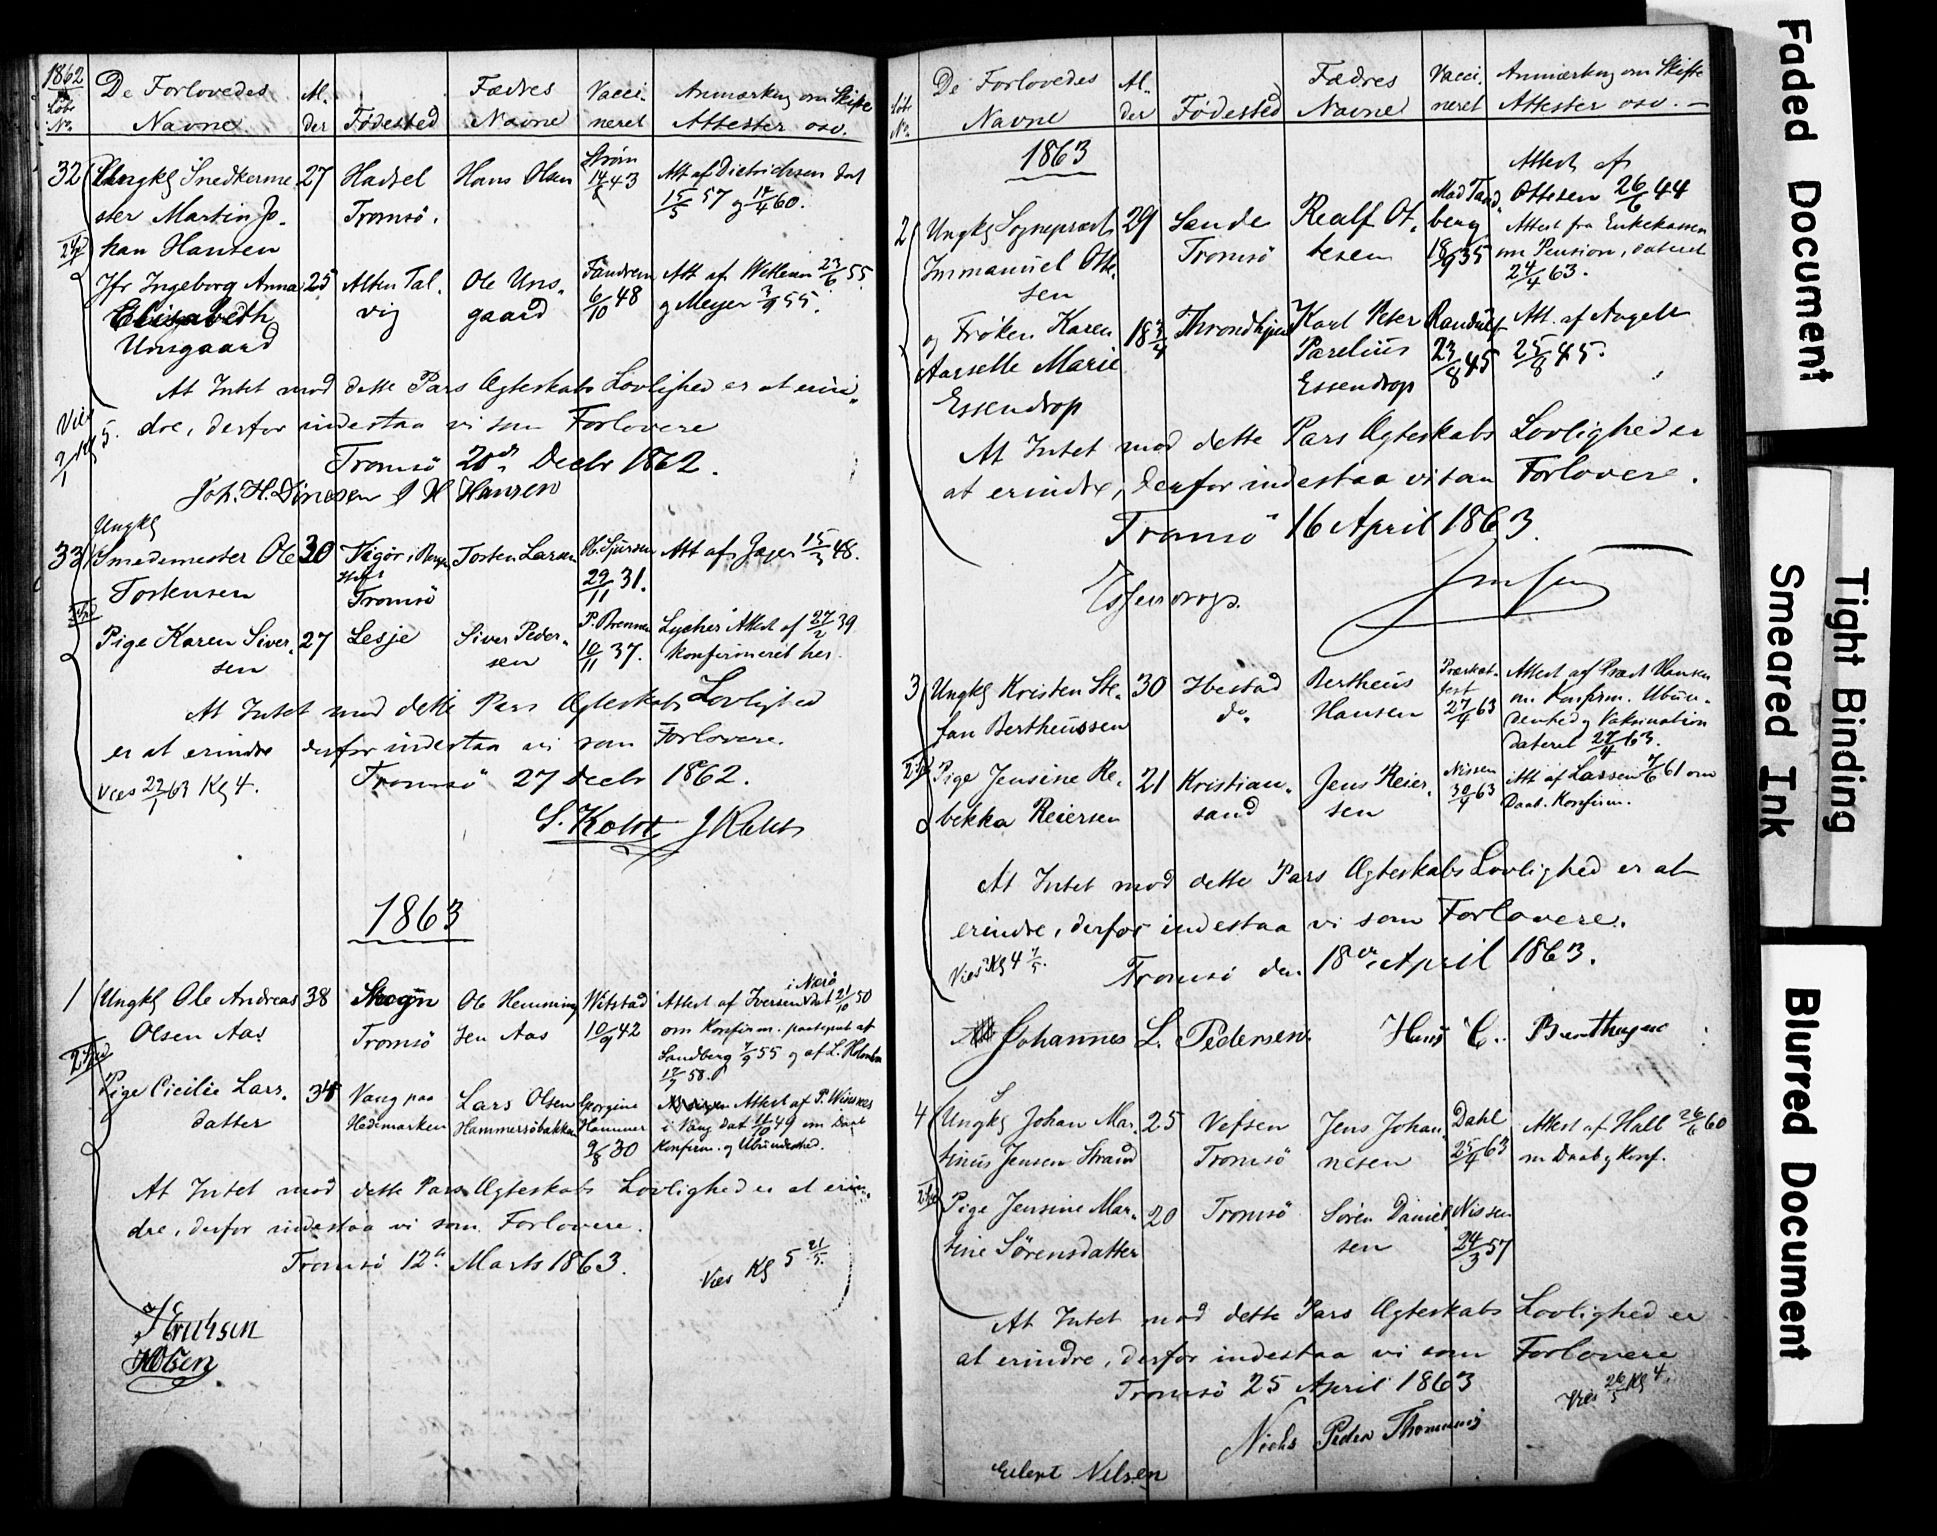 1862
Løbe No.
De Forlovedes Navne
Al- der
Fødested
Fædres Navne
Vacci- neret
Anmærkng om Skifte Attester osv.
32
Ungkl Snedkerme-
ster Martin Jo-
han Hansen
27
Hadsel
Tromsö.
Hans Olsen
Strøm
14/6 43
Att af Dietrichsen dat
15/5 57 og 14/4 60.
Jfr Ingeborg Anna
Elisabeth
Unsgaard
25
Alten Tal-
vig
Ole Uns-
gaard
Fandrem
6/10 48
Att. af 23/6 55
og Meyer 3/9 55.
At Intet mod dette Pars Ægteskabs Lovlighed er at erin-
dre, derfor indestaa vi som Forlovere
Tromsö 20de Decbr 1862.
Vies
2/1 Kl 5.
Joh. H. Dinesen J H Hansen
33
Ungkl
Smedemester Ole
Tostensen
30
Tromsö
Tosten Larsen
29/11 31.
Att af Jager 15/3 48.
Pige Karen Siver-
sen
27
Lesje
Siver Peder-
sen
P. Brennen
10/11 37.
Lyches Attest af 27/2 39
Konfirmeret her
At Intet mod dette Pars Ægteskabs Lovlighed
er at erindre derfor indestaa vi som Forlovere.
Tromsö 27 Decbr 1862.
Vies 22/1 63 Kl 4.
S. Koht J Koht
1863
1
Ungkl Ole Andreas
Olsen Aas
38
Skogn
Tromsö
Ole Hemming-
sen Aas
Witstad
10/9 42
i Nærö
Attest af Iversen dat 21/10 50
om Konfirm. paategnet af
Sandberg 7/9 55 og af L. Holmboe
17/7 58.
Pige Cicilie Lars-
datter
34
Vang paa
Hedemarken
Lars Olsen
Hammersöbakken
Georgine
Hammer
9/8 30
Attest af P. Winsnes
i Vang dat 11/10 49 om Daab
Konfirm. og Ubundenhed.
At Intet mod dette Pars Ægteskabs Lovlighed er at erin-
dre, derfor indestaa vi som Forlovere.
Tromsö 12te Marts 1863.
Vies Kl 5 21/5.
Olsen
Løbe No.
De Forlovedes Navne
Al- der
Fødested
Fædres Navne
Vacci- neret
Anmærkng om Skifte Attester osv. -
1863
2
Ungkl Sognepræst
Immanuel Otte-
sen
29
Sande
Tromsö
Realf Ot-
tesen
Mad Tand-
berg
18/9 35
Attest af
Ottesen 26/6 44
Attest fra Enkekassen
om Pension, dateret
24/4 63.
og Frøken Karen
Marie
Essendrop
18 3/4
Throndhjem
Karl Peter
Parelius
Essendrop
Randulf
23/8 45
Att. af Angell
25/8 45.
At Intet mod dette Pars Ægteskabs Lovlighed er
at erindre, derfor indestaa vi som Forlovere.
Tromsö 16 April 1863.
Essendrop.
3
Ungkl Kristen Ste-
fan Bertheussen
30
Ibestad
do.
Bertheus
Hansen
Præsteat-
test
27/4 63
Attest af Præst Hansen
om Konfirm. Ubun-
denhed og Vaksination
dateret 27/4 63.
Pige Jensine Re-
bekka Reiersen
21
Kristian-
sand
Jens Reier-
sen
Nissen
30/4 63
Att af Lassen 7/6 61 om
Daab. Konfirm.
At Intet mod dette Pars Ægteskabs Lovlighed er at
erindre, derfor indestaa vi som Forlovere.
Vies Kl 4 7/5.
Tromsö den 18de April 1863.
Johannes L. Pedersen. Hans C.
4
Ungkl Johan Mar-
tinus Jensen Strand
25
Vefsen
Tromsö
Jens Johan-
nesen
Dahl
25/4 63
Attest af Hall 26/6 60
om Daab og Konf.
Pige Jensine Mar-
tine Sörensdatter
20
Tromsö
Sören Daniel-
sen
Nissen
24/3 57
At Intet mod dette Pars Ægteskabs Lovlighed er
at erindre, derfor indestaa vi som Forlovere
Tromsö 25 April 1863
Vies 26/5 Kl 4.
Niels Peder
Eilert Nilsen
Faded Document
Tight Binding
Smeared Ink
Blurred Document